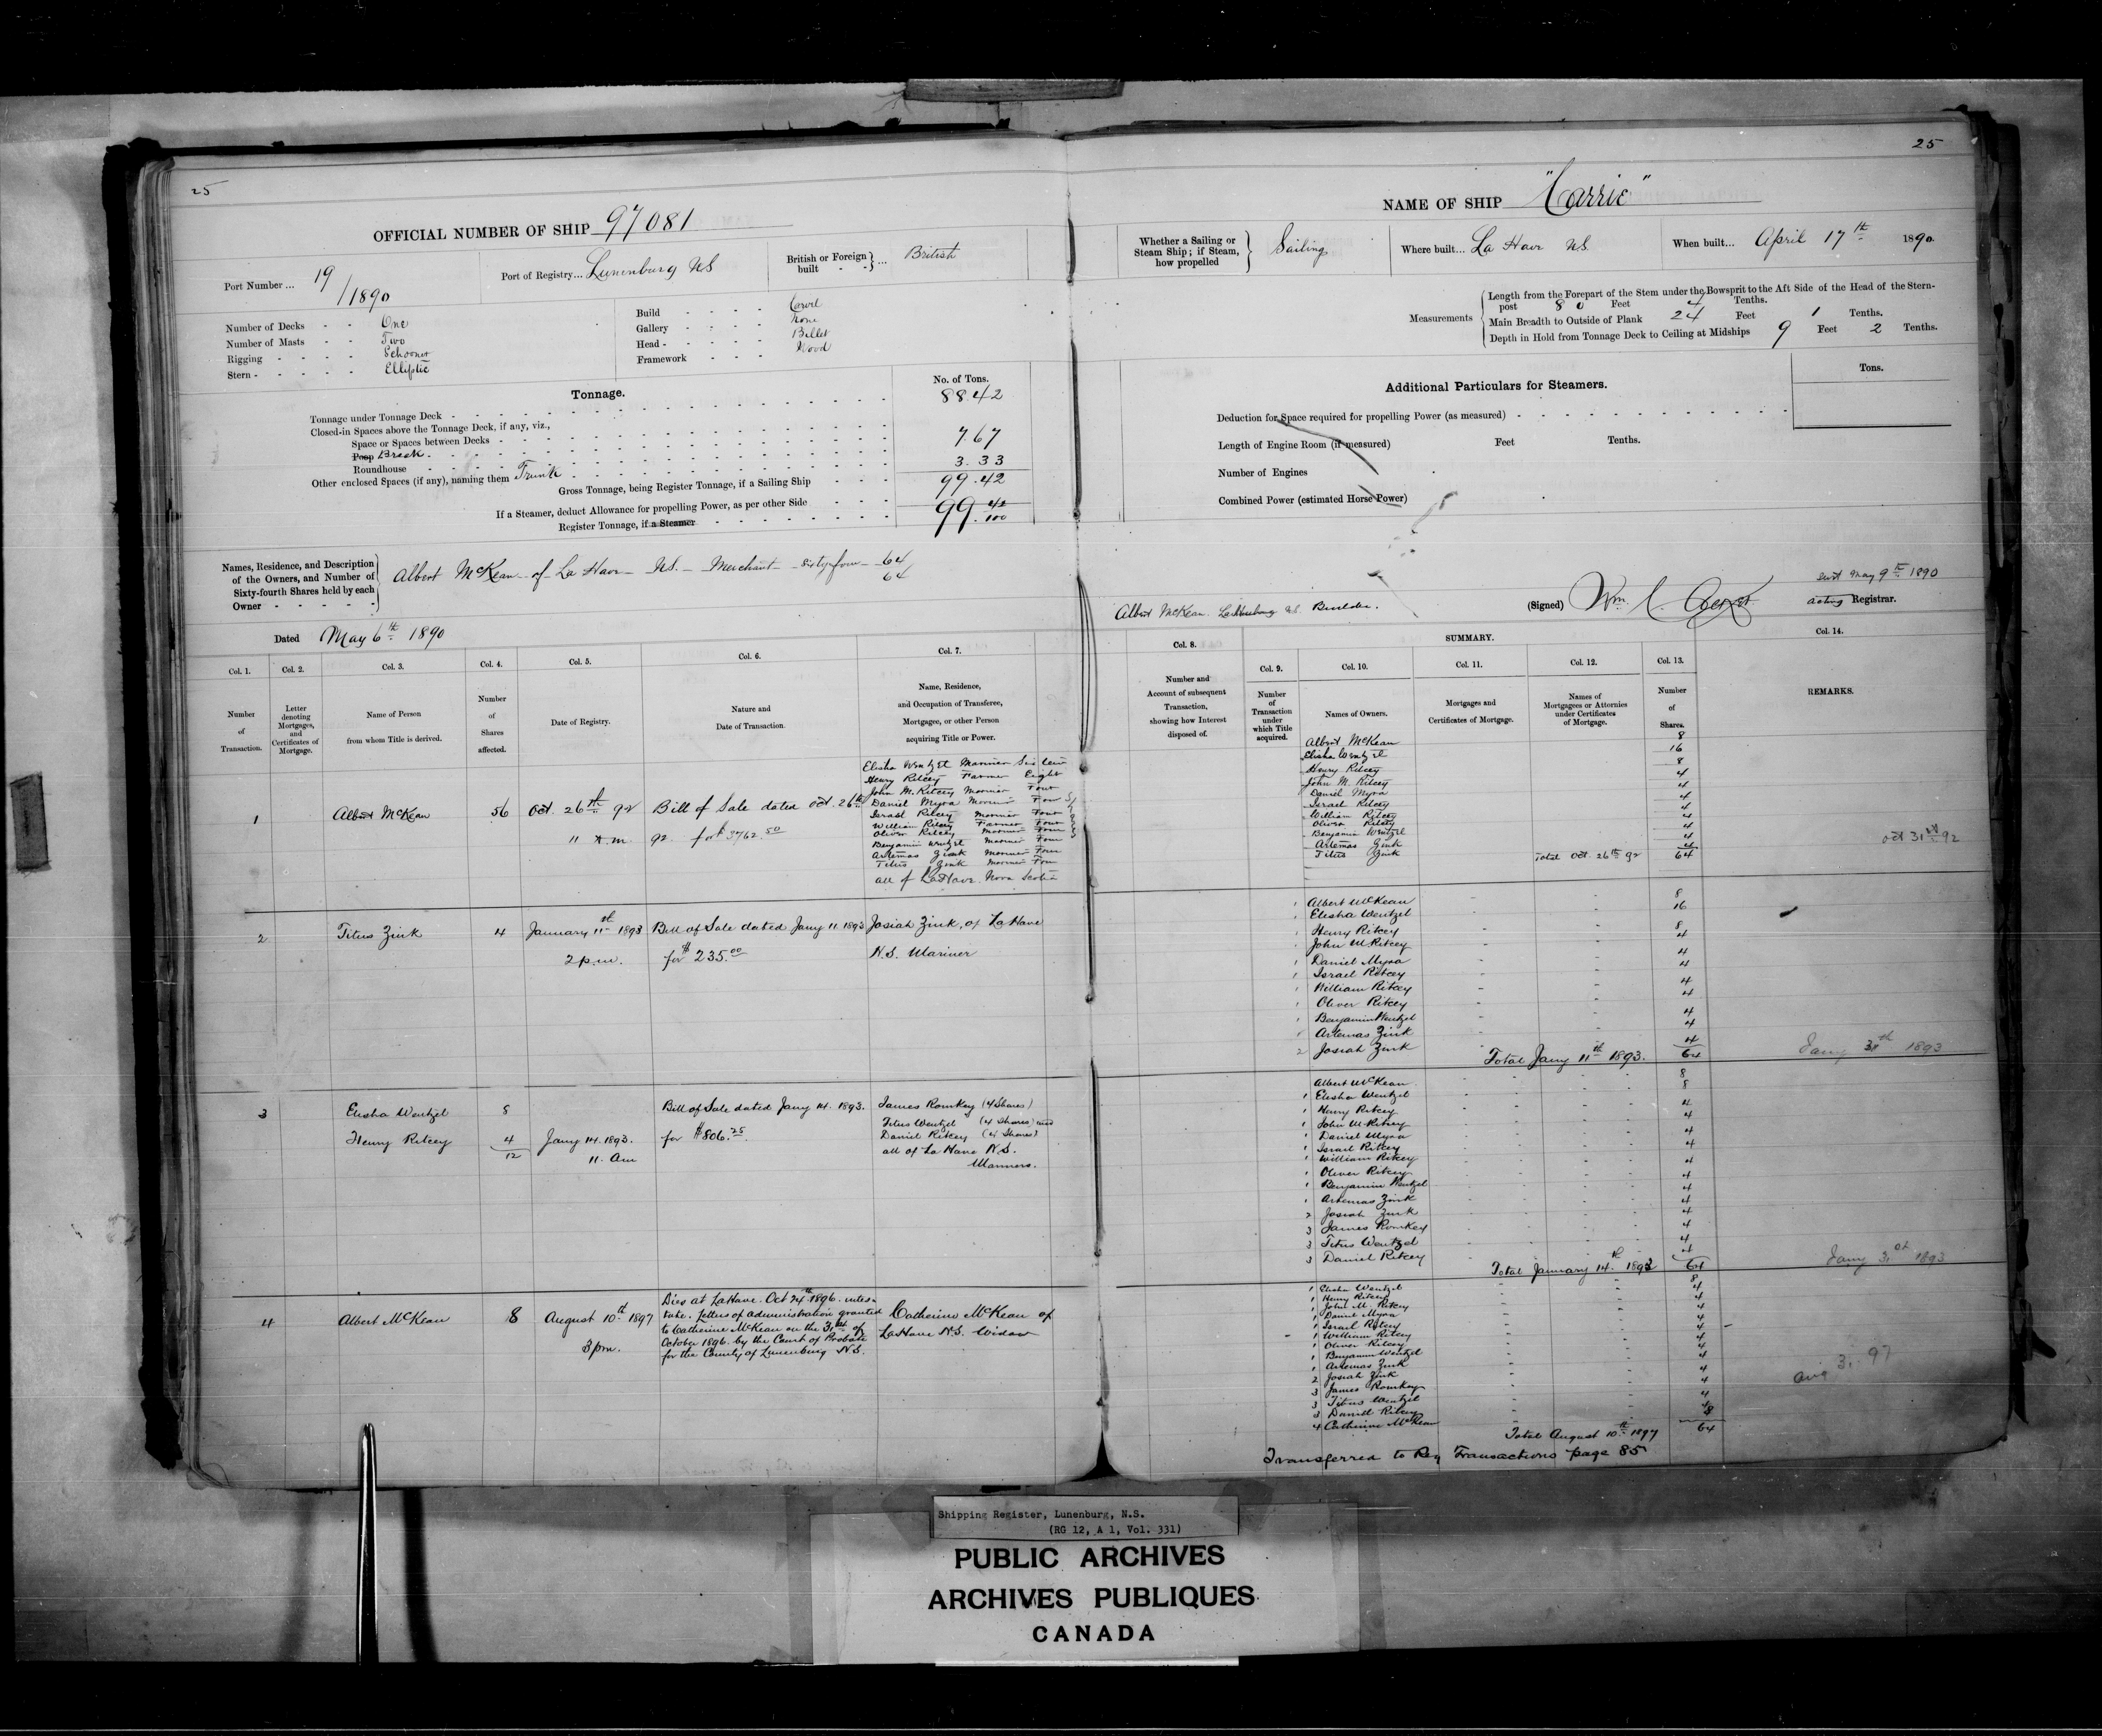 25
OFFICIAL NUMBER OF SHIP 97081
Port Number ... 19/1890
Port of Registry... Lunenburg NS
British or Foreign built - - } ... British
Number of Decks - - One
Number of Masts - - Two
Rigging - - - - Schooner
Stern - - - - - Elliptic
Build - - - - Carvel
Gallery - - - - None
Head - - - - - Billet
Framework - - - Wood
Tonnage.
No. of Tons.
Tonnage under Tonnage Deck - 88.42
Closed-in Spaces above the Tonnage Deck, if any, viz.,
Space or Spaces between Decks -
Poop Break - 7.67
Roundhouse - 3.33
Other enclosed Spaces (if any), naming them Trunk
Gross Tonnage, being Register Tonnage, if a Sailing Ship - - - 99.42
If a Steamer, deduct Allowance for propelling Power, as per other Side
Register Tonnage, if a Steamer - 99.42/100
Names, Residence, and Description of the Owners, and Number of Sixty-fourth Shares held by each Owner - - - - -
Albert McKean of La Have NS. Merchant sixty four 64
64
Dated May 6th 1890
Col. 1. Col. 2. Col. 3. Col. 4. Col. 5. Col. 6. Col. 7.
Number of Transaction.
Letter denoting Mortgages, and Certificates of Mortgage.
Name of Person from whom Title is derived.
Number of Shares affected.
Date of Registry.
Nature and Date of Transaction.
Name, Residence, and Occupation of Transferee, Mortgagee, or other Person acquiring Title or Power.
1 Albert McKean 56 Oct. 26th 92 11 a.m. Bill of Sale dated Oct. 26th 92. for $3762.50
Elisha Wentzel Mariner Sixteen
Henry Ritcey Farmer Eight
John M. Ritcey Mariner Four
Daniel Myra Mariner Four Shares
Israel Ritcey Mariner Four
William Ritcey Farmer Four
Oliver Ritcey Mariner Four
Benjamin Wentzel Mariner Four
Artemas Zink Mariner Four
Titus Zink Mariner Four
all of LaHave. Nova Scotia
2 Titus Zink 4 January 11th 1893 2 p.m. Bill of Sale dated Jany 11. 1893 for $235.00
Josiah Zink, of LaHave
N.S. Mariner
3 Elisha Wentzel 8
Henry Ritcey 4
12
Jany 14. 1893.
11. Am
Bill of Sale dated Jany 14. 1893.
for $806.25.
James Romkey (4 Shares)
Titus Wentzel (4 Shares) and
Daniel Ritcey (4 Shares)
all of La Have N.S.
Mariners.
4 Albert McKean 8 August 10th 1897
3 pm.
Died at LaHave. Oct 24th 1896. intes-
tate. Letters of administration granted
to Catherine McKean on the 31st of
October 1896. by the Court of Probate
for the County of Lunenburg N.S.
Catherine McKean of
LaHave N.S. Widow
25
NAME OF SHIP "Carrie"
Whether a Sailing or Steam Ship; if Steam, how propelled } Sailing
Where built... La Have NS.
When built... April 17th 1890.
Measurements
Length from the Forepart of the Stem under the Bowsprit to the Aft Side of the Head of the Stern-
post 80 Feet 4 Tenths.
Main Breadth to Outside of Plank 24 Feet 1 Tenths.
Depth in Hold from Tonnage Deck to Ceiling at Midships 9 Feet 2 Tenths.
Additional Particulars for Steamers.
Tons.
Deduction for Space required for propelling Power (as measured) -
Length of Engine Room (if measured) Feet Tenths.
Number of Engines
Combined Power (estimated Horse Power)
Albert McKean. NS. Builder.
(Signed) Wm.
May 9th 1890
Acting Registrar.
Col. 8. SUMMARY. Col. 14.
Col. 9. Col. 10. Col. 11. Col. 12. Col. 13.
Number and Account of subsequent Transaction, showing how Interest disposed of.
Number of Transaction under which Title acquired.
Names of Owners.
Mortgages and Certificates of Mortgage.
Names of Mortgagees or Attornies under Certificates of Mortgage.
Number of Shares.
REMARKS.
Albert McKean 8
Elisha Wentzel 16
Henry Ritcey 8
John M. Ritcey 4
Daniel Myra 4
Israel Ritcey 4
William Ritcey 4
Oliver Ritcey 4
Benjamin Wentzel 4
Artemas Zink 4
Titus Zink 4
Total Oct. 26th 92 64
Oct 31st 92
1 Albert McKean 8
1 Elisha Wentzel 16
1 Henry Ritcey 8
1 John M Ritcey 4
1 Daniel Myra 4
1 Israel Ritcey 4
1 William Ritcey 4
1 Oliver Ritcey 4
1 Benjamin Wentzel 4
1 Artemas Zink 4
2 Josiah Zink 4
Total Jany 11th 1893. 64
Jany 31th 1893
Albert McKean 8
1 Elisha Wentzel 8
1 Henry Ritcey 4
1 John M Ritcey 4
1 Daniel Myra 4
1 Israel Ritcey 4
1 William Ritcey 4
1 Oliver Ritcey 4
1 Benjamin Wentzel 4
1 Artemas Zink 4
2 Josiah Zink 4
3 James Romkey 4
3 Titus Wentzel 4
3 Daniel Ritcey 4
Total January 14th 1893 64
Jany 31st 1893
1 Elisha Wentzel 8
1 Henry Ritcey 4
1 John M. Ritcey 4
1 Daniel Myra 4
1 Israel Ritcey 4
1 William Ritcey 4
1 Oliver Ritcey 4
1 Benjamin Wentzel 4
1 Artemas Zink 4
2 Josiah Zink 4
3 James Romkey 4
3 Titus Wentzel 4
3 Daniell Ritcey 4
4 Catherine McKean 8
Total August 10th 1897 64
Aug 31. 97
Transferred to Reg Transactions page 85
Shipping Register, Lunenburg, N.S.
(RG 12, A 1, Vol. 331)
PUBLIC ARCHIVES
ARCHIVES PUBLIQUES
CANADA